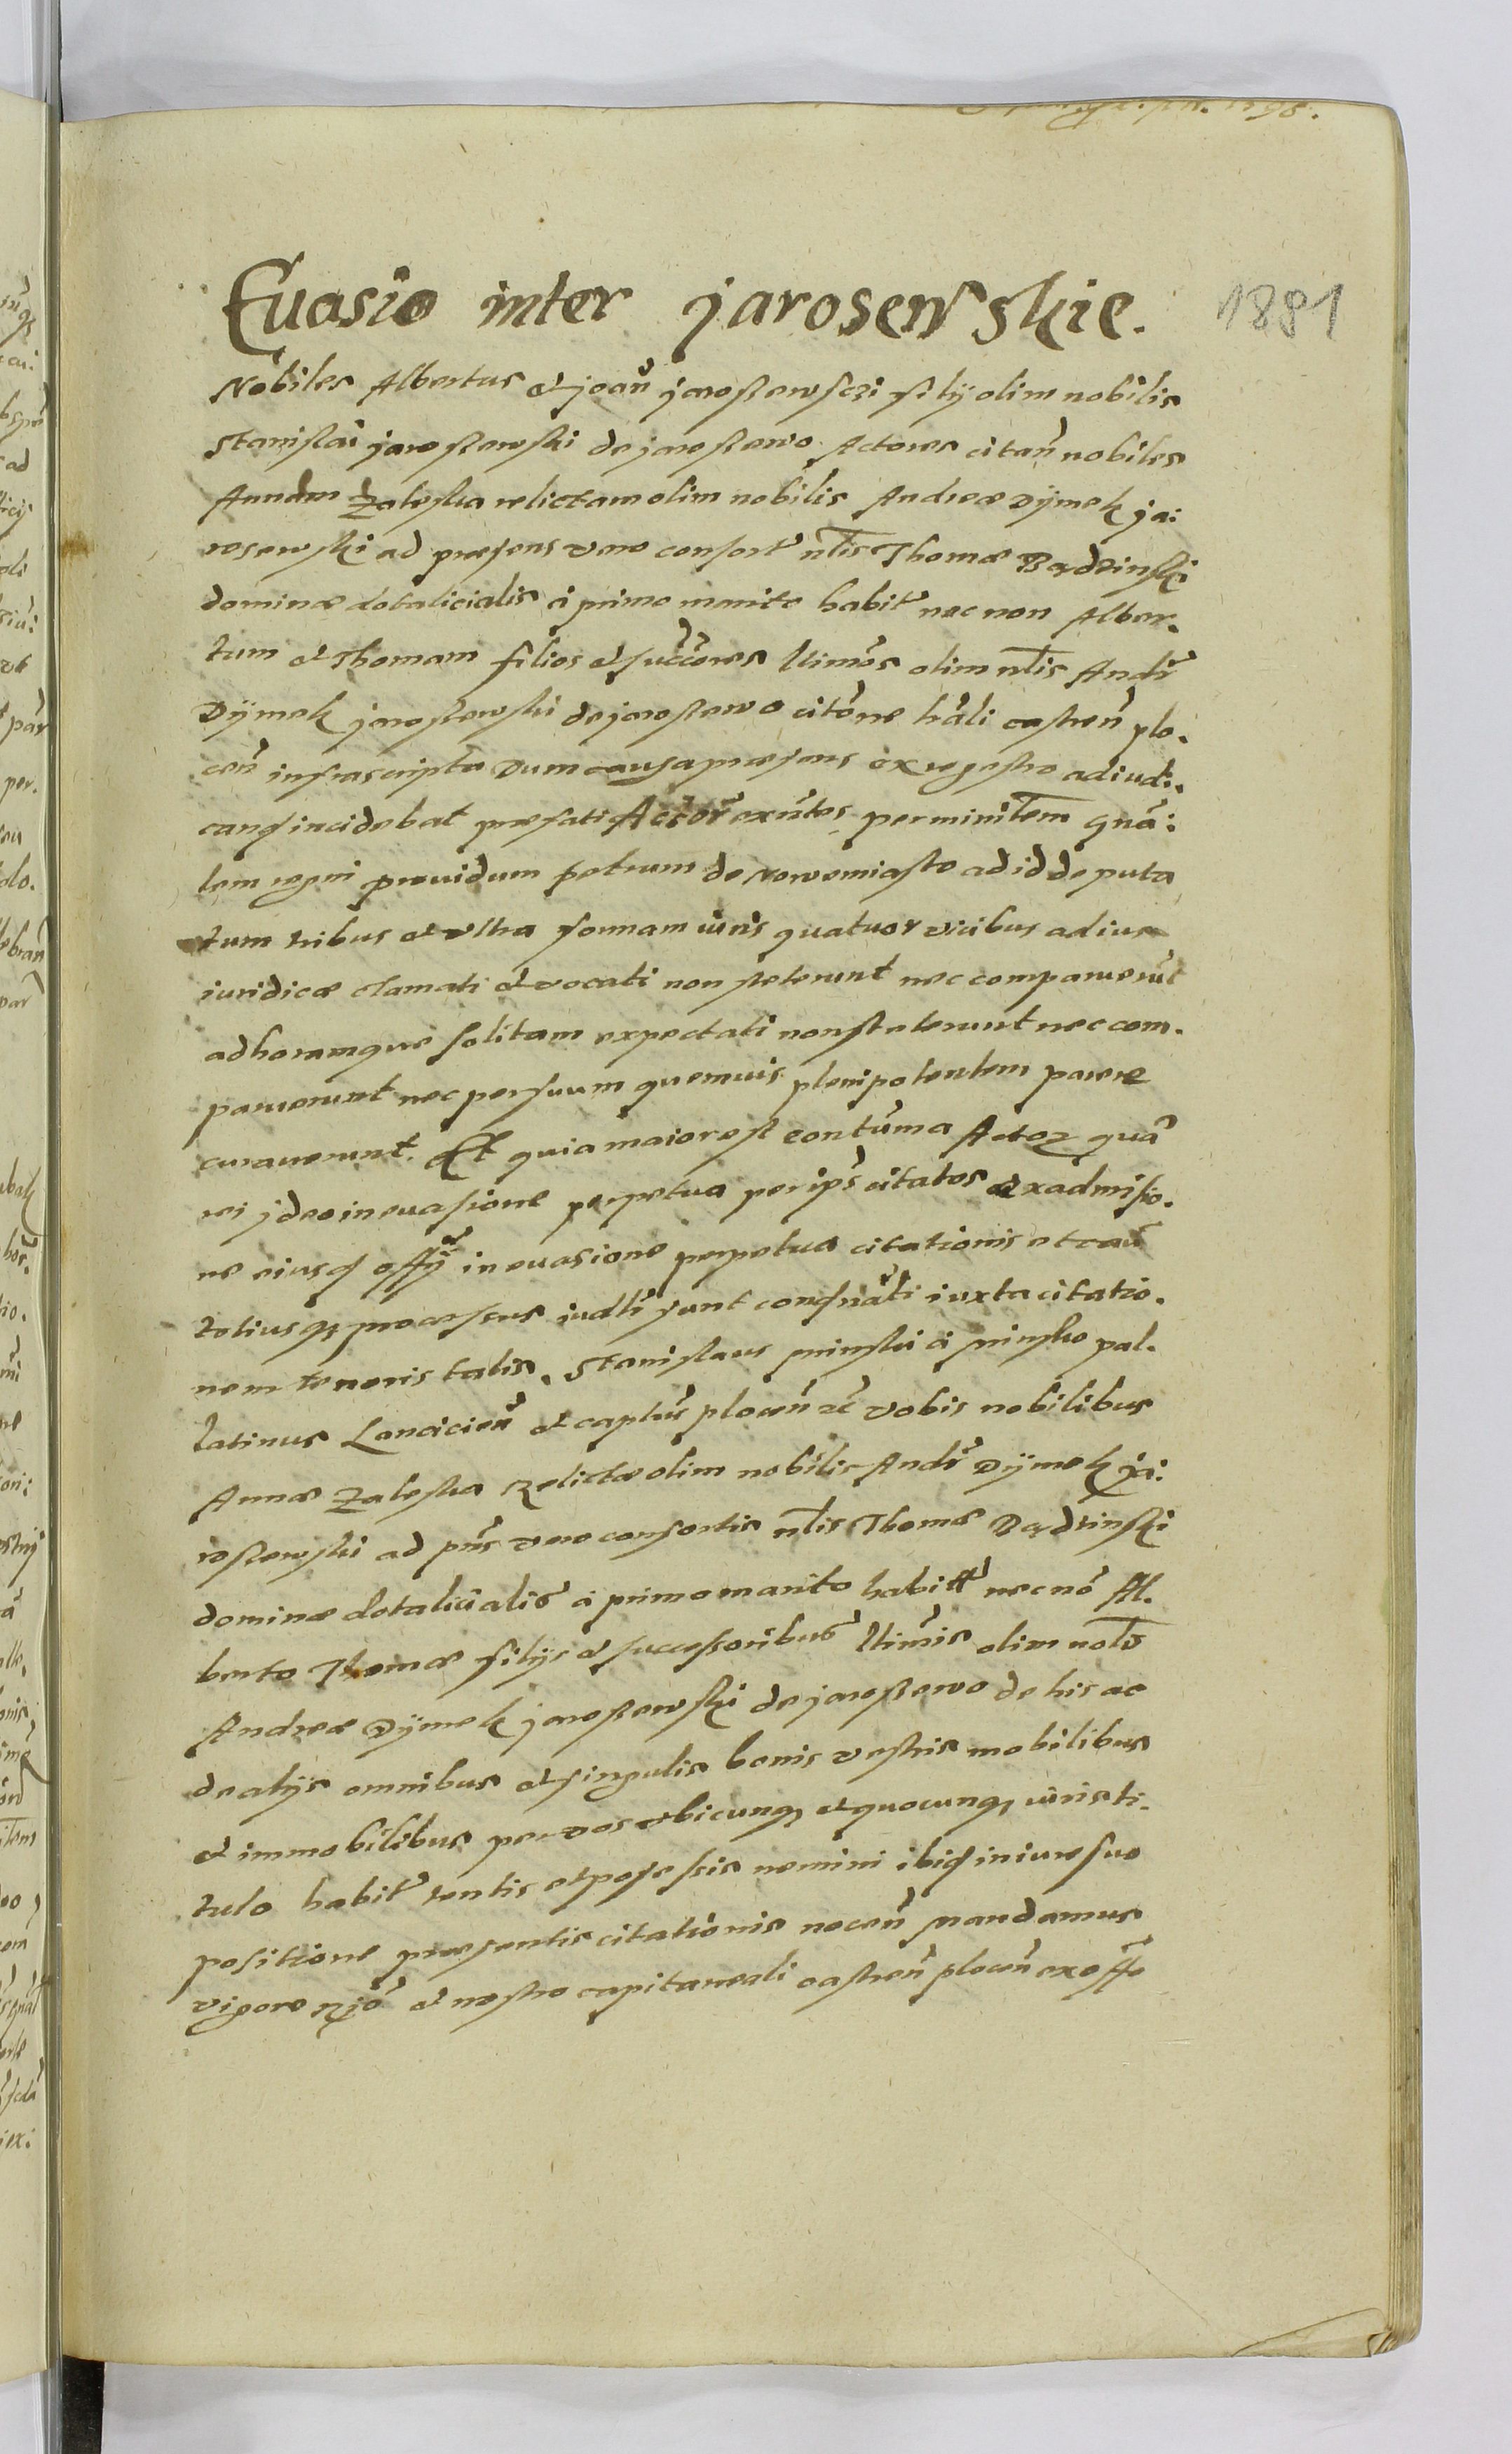 Euasio inter jarosewskie. 1881
Nobiles Albertus et joañ jarossewsczi filij olim nobilis
Stanislai jarossewski de jarossewo Actores citañ nobiles
Annam Zaleska relictam olim nobilis Andreæ Dÿmek ja:
rosewski ad præsens vero consort nlis Thomæ Bądzinski
dominæ dotalicialis à primo marito habit nec non Alber.
tum et Thomam filios et succores ltimos olim nlis Andr
Dÿmek jarossewski de jarossewo citõne hãli castreñ plo.
ceñ infrascripta Dum causa præsens ex regestro adiudi.
canq incidebat præfati Actor exñtes per minitem gnã:
lem regni prouidum petrum de Nowemiasto ad id deputa
tum tribus et vltra formam iuris quatuor vicibus ad iura
iuridicæ clamati et vocati non steterunt nec comparuerũt
ad horamque solitam expectati non steterunt nec com.
paruerunt nec per suum quemuis plenipotentem parere
curauerunt. Et quia maior est contuma Actoꝝ quã
rei jdeo in euasione perpetua per ips citatos et ex admissio.
ne eiusq offÿ in euasione perpetua citationis et cau
totiusqꝫ processus iudli sunt condñati iuxta citatio.
nem tenoris talis. Stanislaus minski à minsko pal.
latinus Lanciciеñ et captus ploceñ rc vobis nobilibus
Annæ Zaleska Relictæ olim nobilis Andr Dÿmek ja:
rossewski ad pñs vero consortis nlis Thomæ Bądzinski
dominæ dotalicialis à primo marito habitt necnõ Al.
berto Thomæ filijs et successoribus ltimis olim nolis
Andreæ Dÿmek jarossewski de jarossewo de his ac
de alijs omnibus et singulis bonis vestris mobilibus
et immobilibus per vos vbicunqꝫ et quocunqꝫ iuris ti.
tulo habit tentis et possessis nemini ibiq in iure suo
positione præsentis citationis noceñ mandamus
vigore rjo et nostro capitaneali castreñ ploceñ ex offo